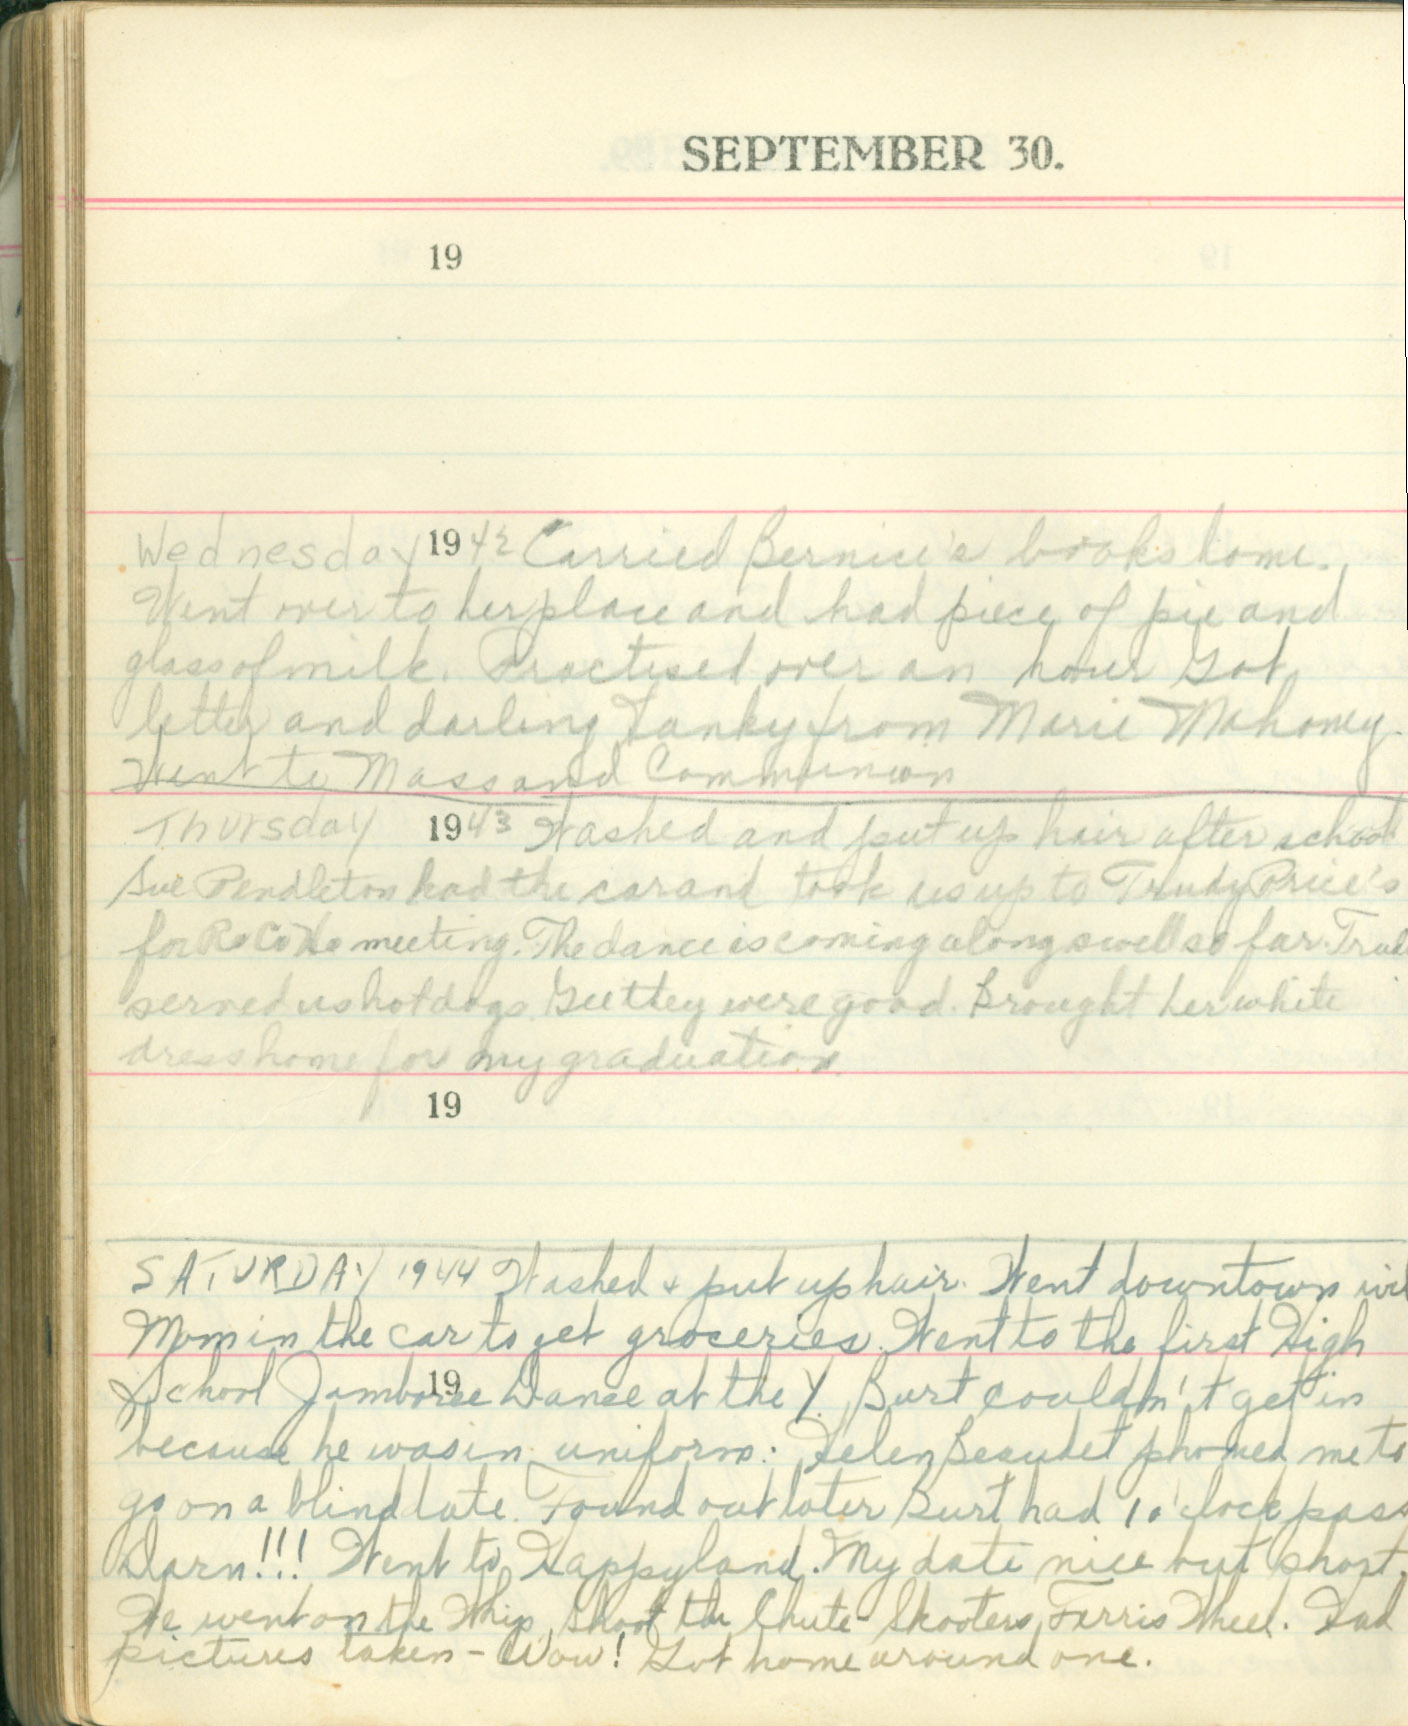 SEPTEMBER 30.
19
Wednesday 1942 Carried Bernice's books home.
Went over to her place and had piece of pie and
glass of milk. Practised over an hour Got
letter and darling hanky from Marie Mahoney.
Went to Mass and Communion
Thursday 1943 Washed and put up hair after school
Sue Pendleton had the car and took us up to Trudy Price's
for meeting. The dance is coming along swell so far. Trud
served us hotdogs. Gee they were good. Brought her white
dress home for my graduation
19
SATURDAY 1944 Washed + put up hair. Went downtown wit
Mom in the car to get groceries. Went to the first High
19
School Jamboree Dance at the Y. Burt couldn't get in
because he was in uniform. Helen Beaudet phoned me to
go on a blind date. Found out later Burt had 1 o'clock pass
Darn!!! Went to Happyland. My date nice but short.
We went on the Whip, Shoot the Chute - Skooters, Ferris Wheel. Had
pictures taken - Wow! Got home around one.